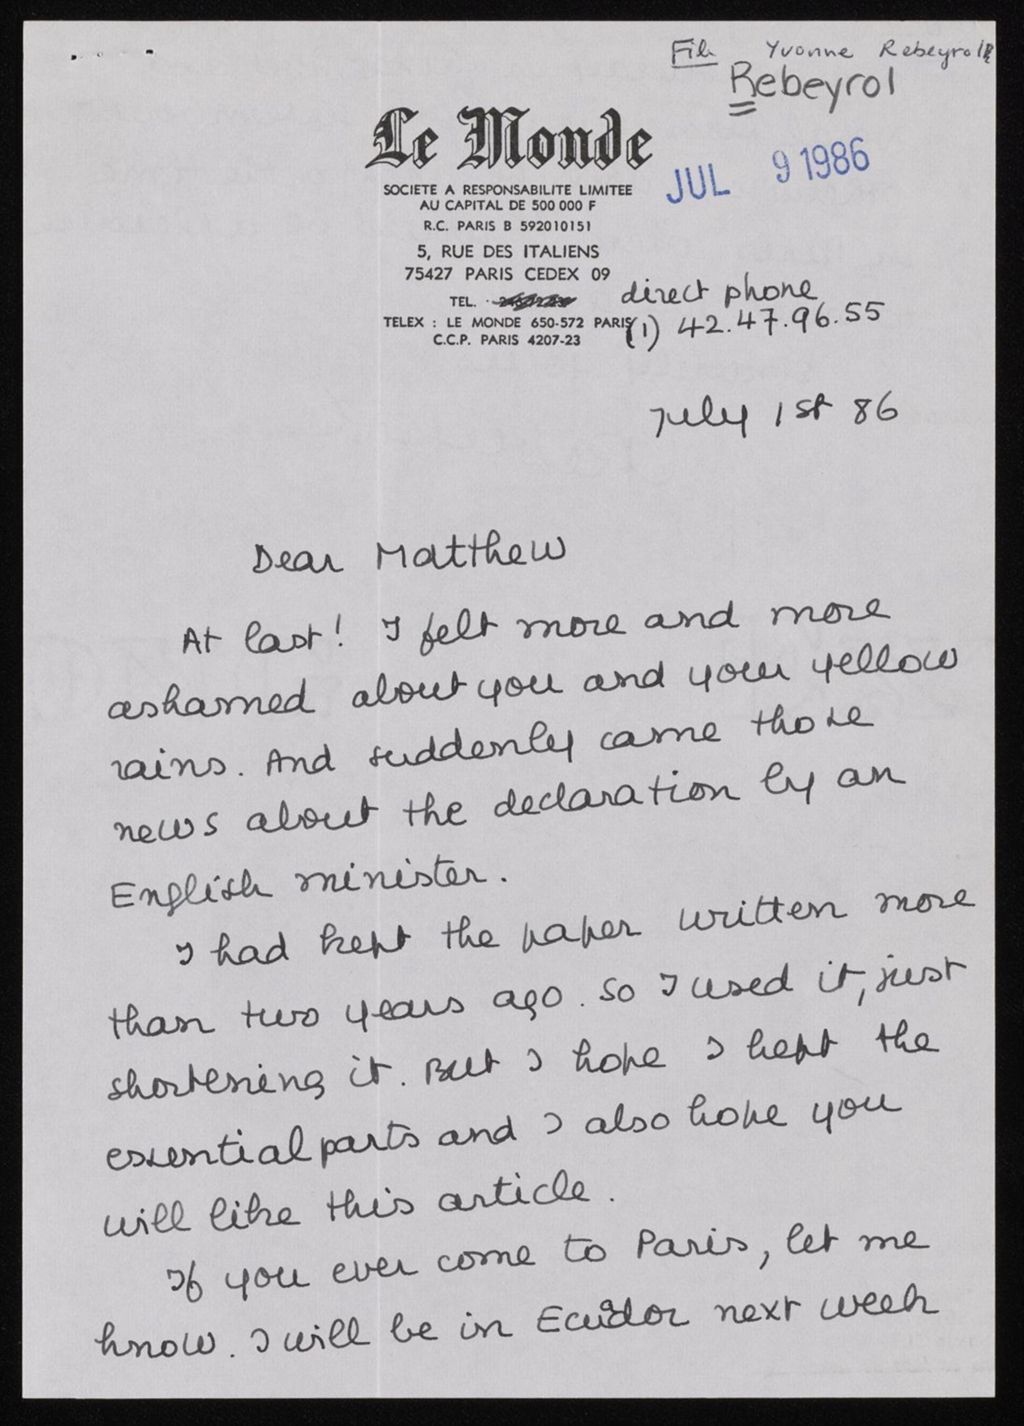 File Yvonne Rebeyrol
Rebeyrol
Le Monde
JUL 9 1986
SOCIETE A RESPONSABILITE LIMITEE
AU CAPITAL DE 500 000 F
R.C. PARIS B 592010151
5, RUE DES ITALIENS
75427 PARIS CEDEX 09
TEL.
direct phone
TELEX : LE MONDE 650-572 PARIS
(1) 42.47.96.55
C.C.P. PARIS 4207-23
July 1st 86
Dear Matthew
At last! I felt more and more
ashamed about you and your yellow
rains. And suddenly came those
news about the declaration by an
English minister.
I had kept the paper written more
than two years ago. So I used it, just
shortening it. But I hope I kept the
essential parts and I also hope you
will like this article.
If you ever come to Paris, let me
know. I will be in Ecuador next week